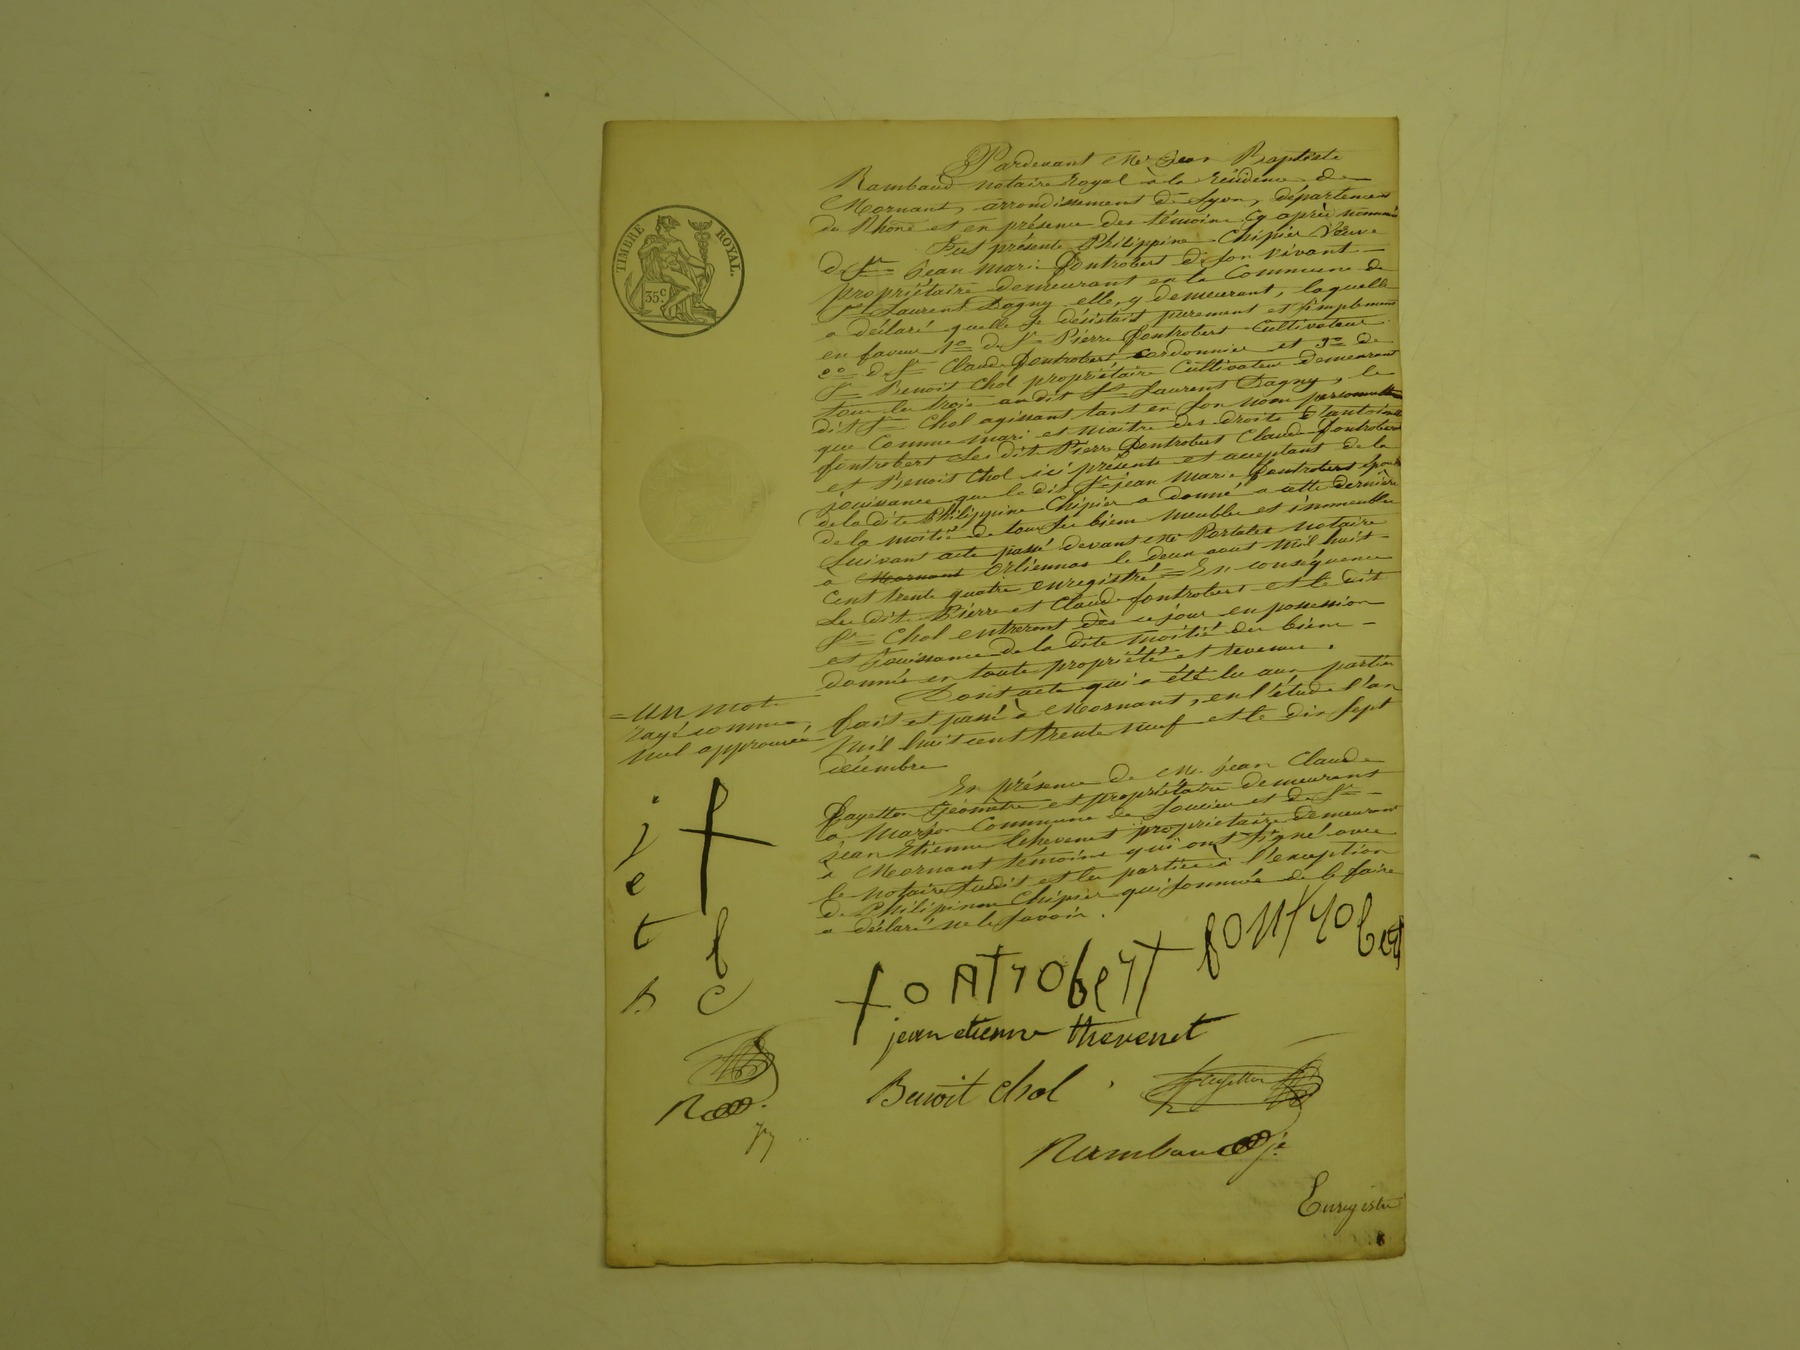 Pardevant Me Jean Baptiste
Rambaud notaire Royal à la résidence de
Mornant, arrondissement de Lyon, département
du Rhône et en présence des témoins cy après nommés
Fut présente Philippine Chipier Veuve
de Sr Jean Marie fontrobert de son vivant
propriétaire demeurant en la Commune de
St Laurent Dagny elle y demeurant, laquelle
a déclaré quelle se désistait purement et simplement
en faveur 1o de Sr Pierre fontrobert Cultivateur
2o de Sr Claude fontrobert Cordonnier et 3o de
Sr Benoit Chol propriétaire Cultivateur demeurant
tous les trois audit St Laurent Dagny, le
dit Sr Chol agissant tant en son nom personnelle
que Comme mari et maître des droits
fontrobert Les dits Pierre fontrobert Claude fontrobert
et Benoit Chol ici présents et acceptant de la
jouissance que le dit Sr jean Marie fontrobert époux
de la dite Philippine Chipier a donné a cette dernière
de la moitié de tous ses biens meubles et immeubles
Suivant acte passé devant Me Portales notaire
a Mornant Orlienas le deux aout Mil huit
Cent trente quatre enregistré = En conséquence
Les dits Pierre et Claude fontrobert et le dit
Sr Chol entreront dès ce jour en possession
et jouissance de la dite moitié des biens
donnés en toute propriété et revenus.
Dont acte qui a été lu aux parties
fait et passé à Mornant, en l'étude l'an
Mil huit cent trente neuf et le dix sept
décembre
= un mot
rayé comme
nul approuvé
En présence de Mr. jean Claude
fayetton Géomètre et propriétaire demeurant
a Marjon Commune de Soucieu et de Sr
jean Etienne thevenet propriétaire demeurant
a Mornant témoins qui ont signé avec
le notaire susdit et les parties à l'exception
de Philipinne Chipier qui sommée de le faire
a déclaré ne le savoir.
j e t
f
f
B C
fontrobert fontrobert
jean etienne thevenet
Benoit Chol
fayetton
Rambaud je
Enregistré
TIMBRE ROYAL.
35 c